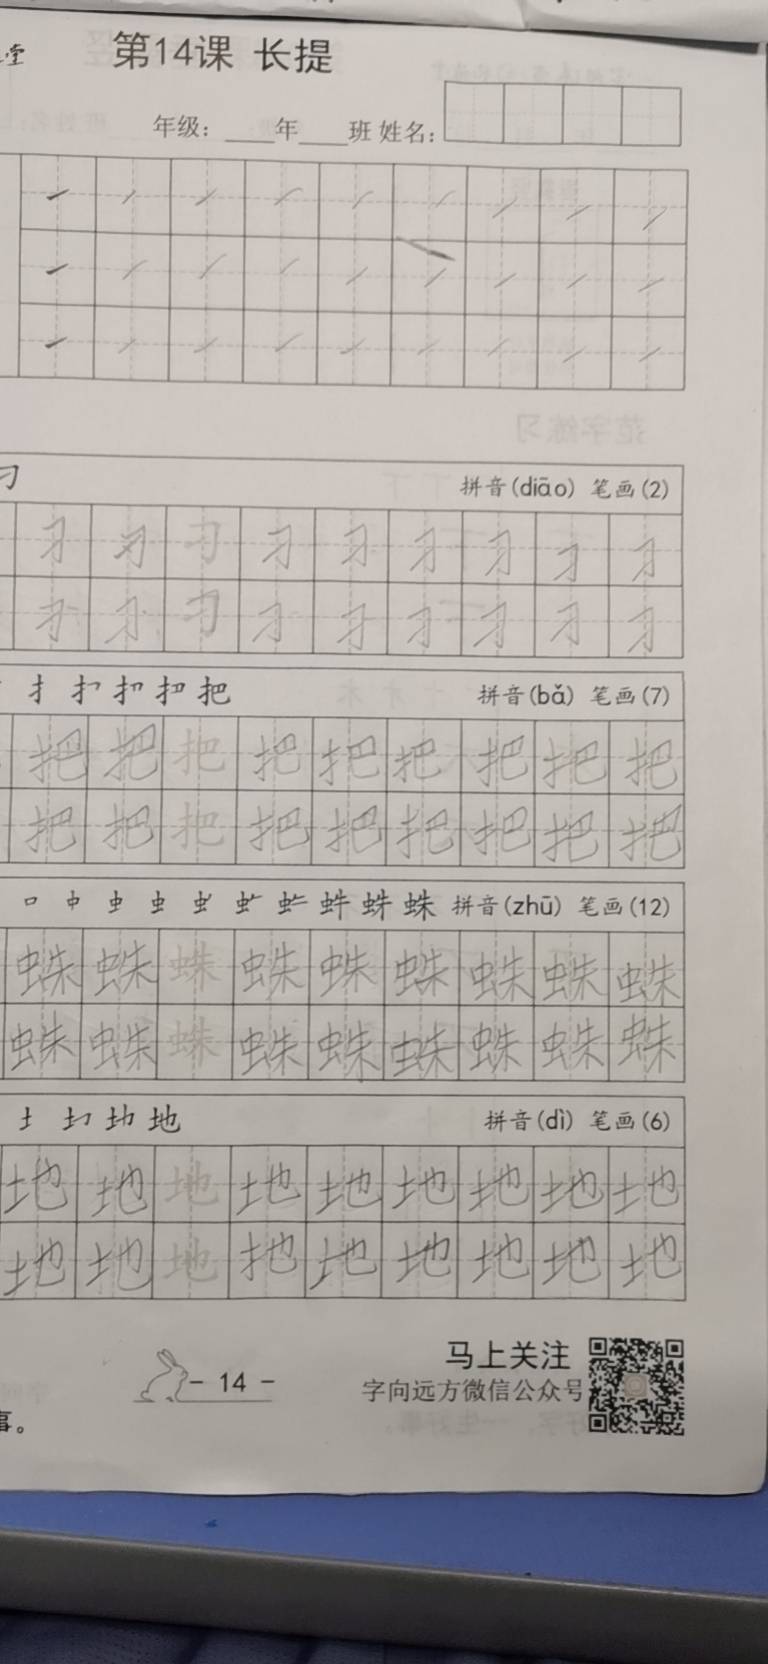 堂
第14课 长提
年级：____年____班 姓名：
刁 拼音(diāo) 笔画(2)
刁 刁 刁 刁 刁 刁 刁 刁 刁
刁 刁 刁 刁 刁 刁 刁 刁 刁
扌 把 拼音(bǎ) 笔画(7)
把 把 把 把 把 把 把 把 把
把 把 把 把 把 把 把 把 把
口 中 虫 虫 蛛 拼音(zhū) 笔画(12)
蛛 蛛 蛛 蛛 蛛 蛛 蛛 蛛 蛛
蛛 蛛 蛛 蛛 蛛 蛛 蛛 蛛 蛛
土 地 拼音(dì) 笔画(6)
地 地 地 地 地 地 地 地 地
地 地 地 地 地 地 地 地 地
马上关注
- 14 -
字向远方微信公众号
事。